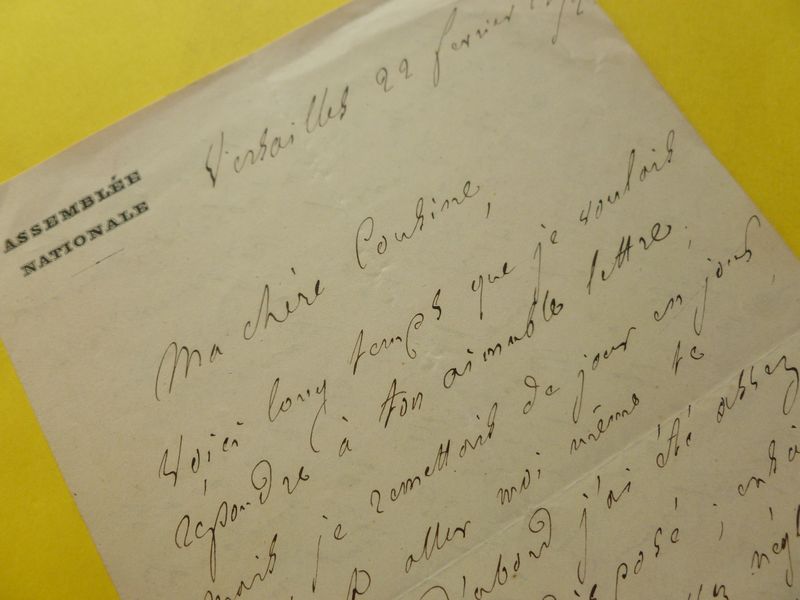 ASSEMBLÉE
NATIONALE
Versailles 22 fevrier
Ma chère Cousine,
Voici long temps que je voulois
répondre à ton aimable lettre,
mais je remettois de jour en jour,
aller moi même te
d'abord j'ai été assez